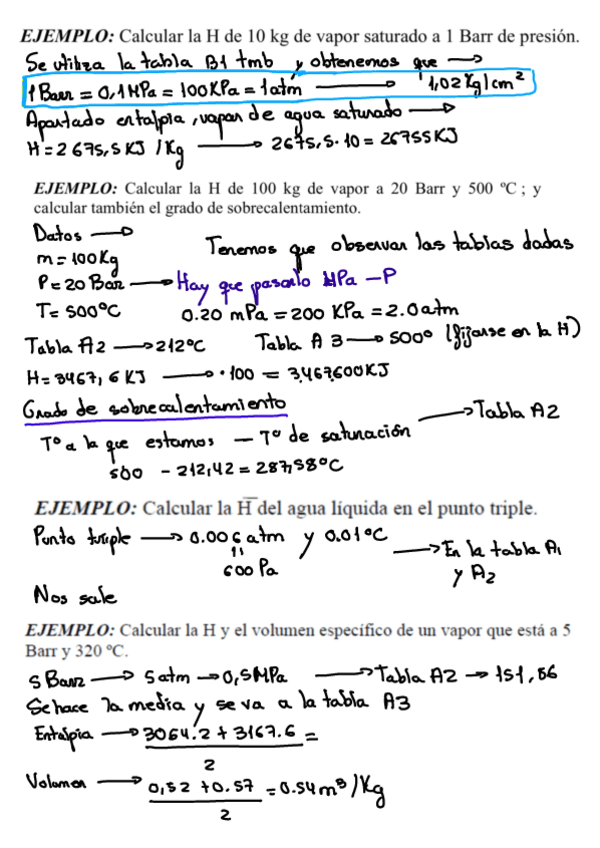 EJEMPLO: Calcular la H de 10 kg de vapor saturado a 1 Barr de presión.
Se utiliza la tabla B1 tmb y obtenemos que →
1 Barr = 0,1 MPa = 100KPa = 1 atm → 1,02 Kg/cm²
Apartado entalpia, vapor de agua saturado →
H = 2675,5 KJ /Kg → 2675,5·10 = 26755KJ
EJEMPLO: Calcular la H de 100 kg de vapor a 20 Barr y 500 ºC ; y
calcular también el grado de sobrecalentamiento.
Datos →
Tenemos que observar las tablas dadas
m = 100Kg
P = 20 Bar → Hay que pasarlo MPa - P
T = 500ºC 0.20 mPa = 200 KPa = 2.0 atm
Tabla A2 → 212ºC Tabla A3 → 500º (fijarse en la H)
H = 3467,6 KJ → ·100 = 3,467,600KJ
Grado de sobrecalentamiento
Tº a la que estamos - Tº de saturación → Tabla A2
500 - 212,42 = 287,58ºC
EJEMPLO: Calcular la H̅ del agua líquida en el punto triple.
Punto triple → 0.006 atm y 0.01ºC → En la tabla A1
" 600 Pa y A2
Nos sale
EJEMPLO: Calcular la H y el volumen específico de un vapor que está a 5
Barr y 320 ºC.
5 Barr → 5 atm → 0,5MPa → Tabla A2 → 151,86
Se hace la media y se va a la tabla A3
Entalpia → 3064.2 + 3167.6 =
2
Volumen → 0,52 + 0.57 = 0.54 m³/Kg
2